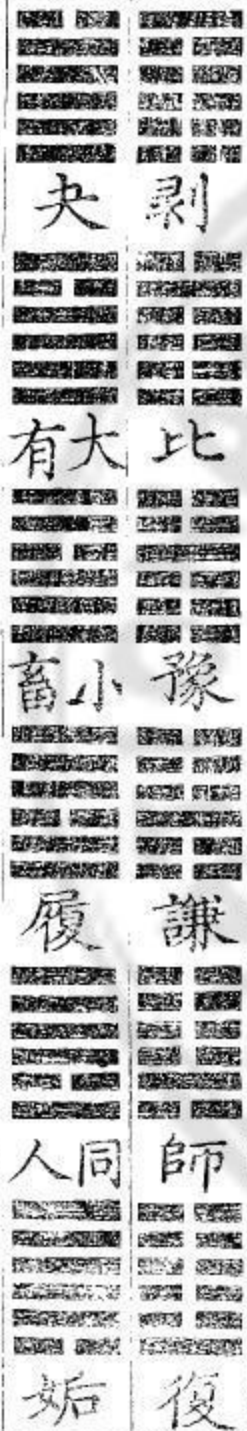 剥
比
豫
謙
師
復
夬
大有
小畜
履
同人
姤